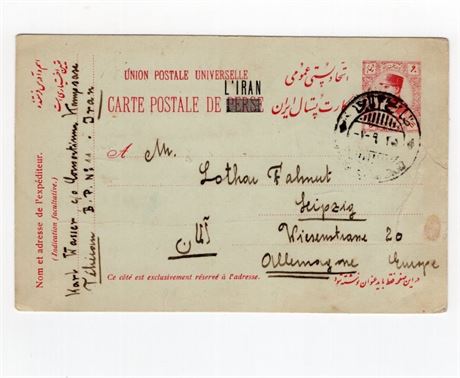 UNION POSTALE UNIVERSELLE
اتحاد پستی عمومی
L'IRAN
CARTE POSTALE DE PERSE
کارت پستال ایران
A Mr.
Lothar Fahnut
Leipzig
Wiesenstrasse 20
آلمان
Allemagne Europe
Ce côté est exclusivement réservé à l'adresse.
در این صفحه فقط باید عنوان نوشته شود
Nom et adresse de l'expéditeur.
(Indication facultative.)
Karl Wasser c/o Consortium Kampsax
Téheran B.P. No 11. Iran